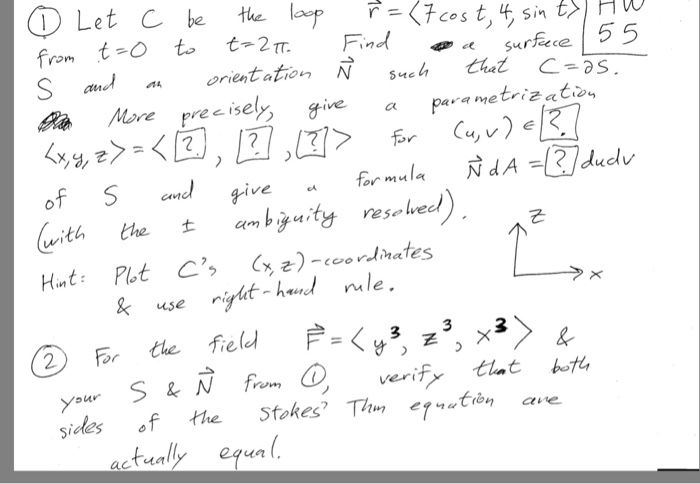 ① Let C be the loop r⃗ = <7cos t, 4, sin t> HW
from t=0 to t=2π. Find a surface 55
S and an orientation N⃗ such that C=∂S.
More precisely, give a parametrization
<x,y,z> = <[?], [?], [?]> for (u,v) ∈ [?]
of S and give a formula N⃗dA = [?] dudv
(with the ± ambiguity resolved).
Hint: Plot C's (x,z)-coordinates
& use right-hand rule.
z
x
② For the field F⃗ = <y³, z³, x³> &
your S & N⃗ from ①, verify that both
sides of the Stokes' Thm equation are
actually equal.